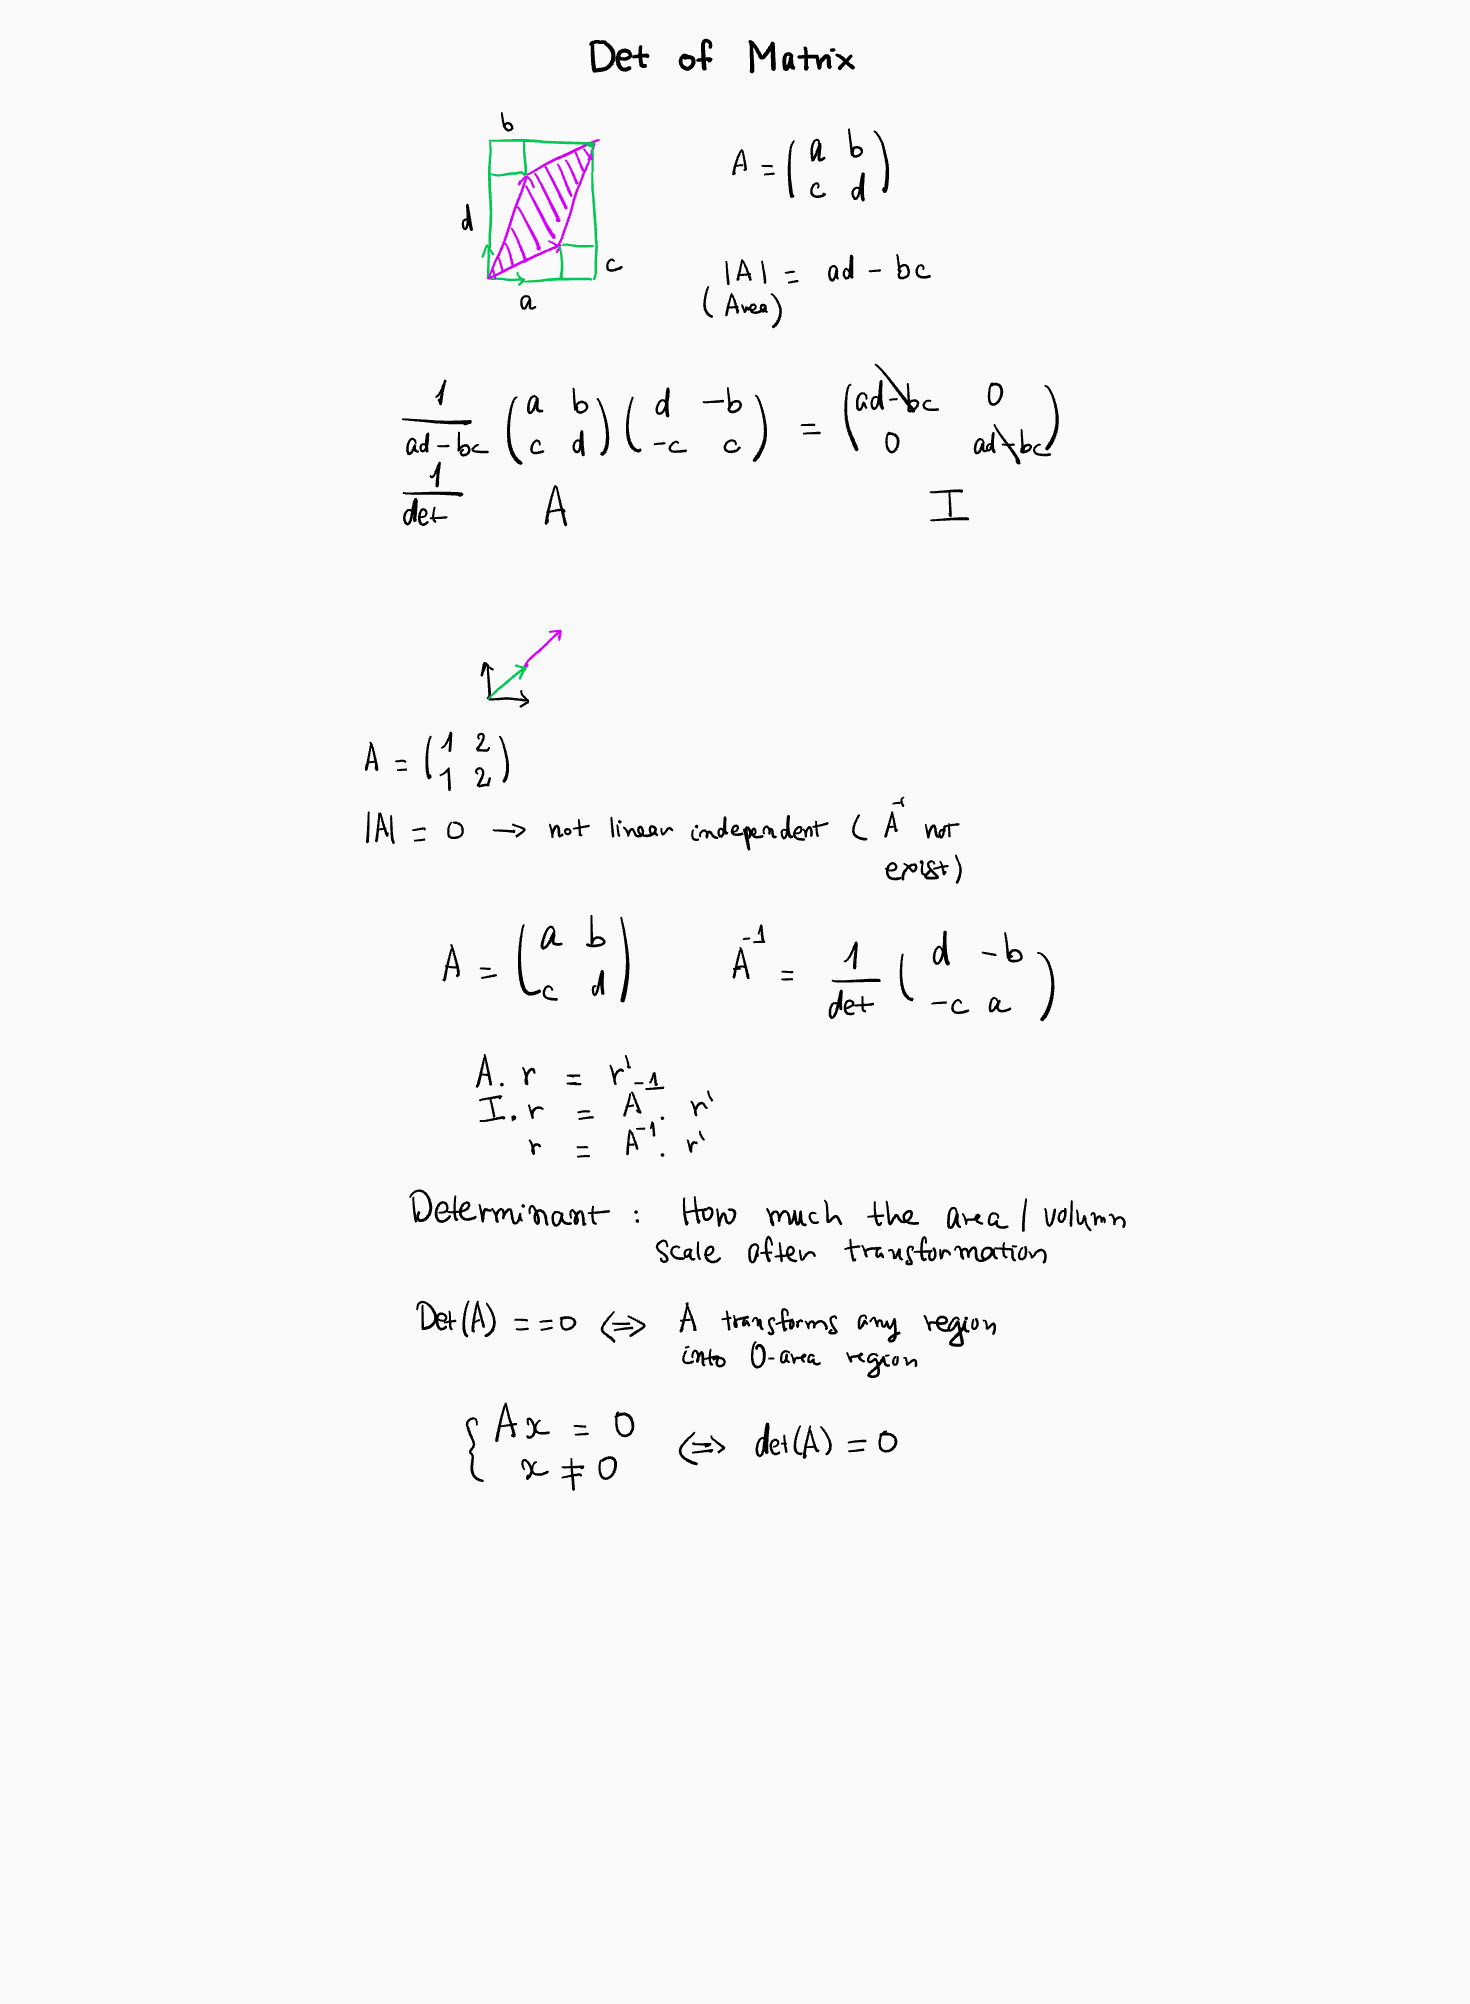 Det of Matrix
b
d
a
c
A = ( a b
c d )
|A| = ad - bc
( Area )
1/(ad - bc) ( a b
c d ) ( d -b
-c c ) = ( ad - bc 0
0 ad - bc )
1/det A I
A = ( 1 2
1 2 )
|A| = 0 → not linear independent ( A⁻¹ not
exist )
A = ( a b
c d ) A⁻¹ = 1/det ( d -b
-c a )
A. r = r'
I. r = A⁻¹. r'
r = A⁻¹. r'
Determinant : How much the area / volumn
scale after transformation
Det(A) = = 0 ⟺ A transforms any region
into 0-area region
{ Ax = 0
x ≠ 0 ⟺ det(A) = 0